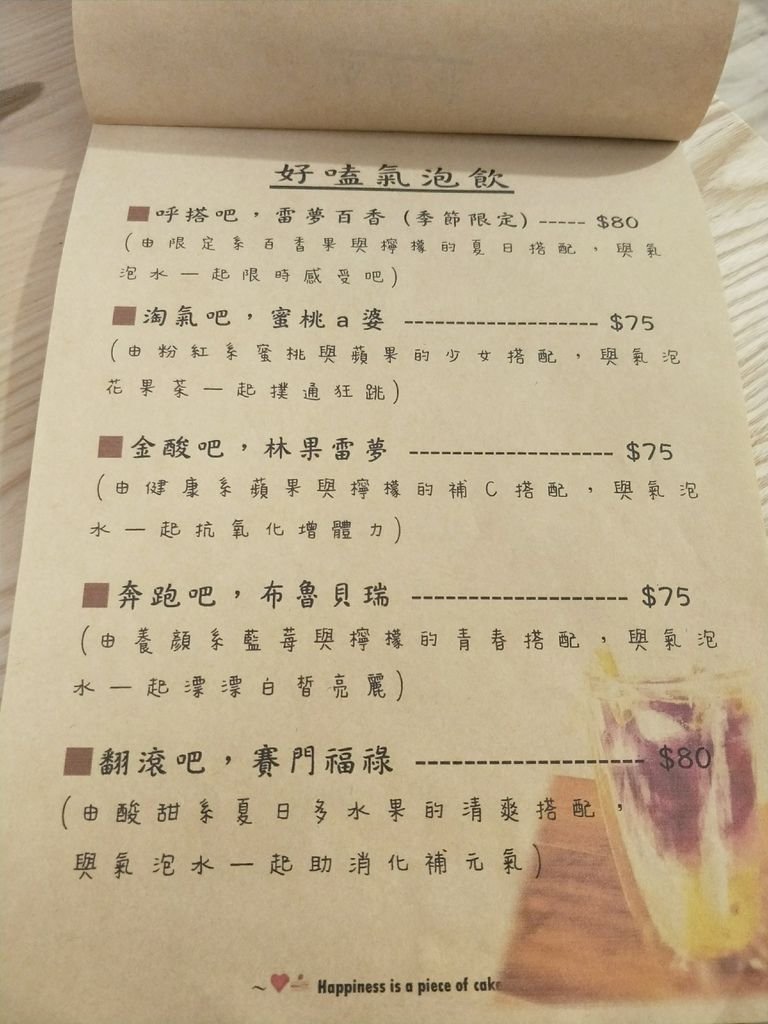 好嗑氣泡飲
呼搭吧，雷夢百香(季節限定)-----$80
(由限定系百香果與檸檬的夏日搭配，與氣
泡水一起限時感受吧)
淘氣吧，蜜桃a婆-------------------$75
(由粉紅系蜜桃與蘋果的少女搭配，與氣泡
花果茶一起撲通狂跳)
金酸吧，林果雷夢--------------------$75
(由健康系蘋果與檸檬的補C搭配，與氣泡
水一起抗氧化增體力)
奔跑吧，布魯貝瑞--------------------$75
(由養顏系藍莓與檸檬的青春搭配，與氣泡
水一起漂漂白皙亮麗)
翻滾吧，賽門福祿--------------------$80
(由酸甜系夏日多水果的清爽搭配，
與氣泡水一起助消化補元氣)
~ Happiness is a piece of cake